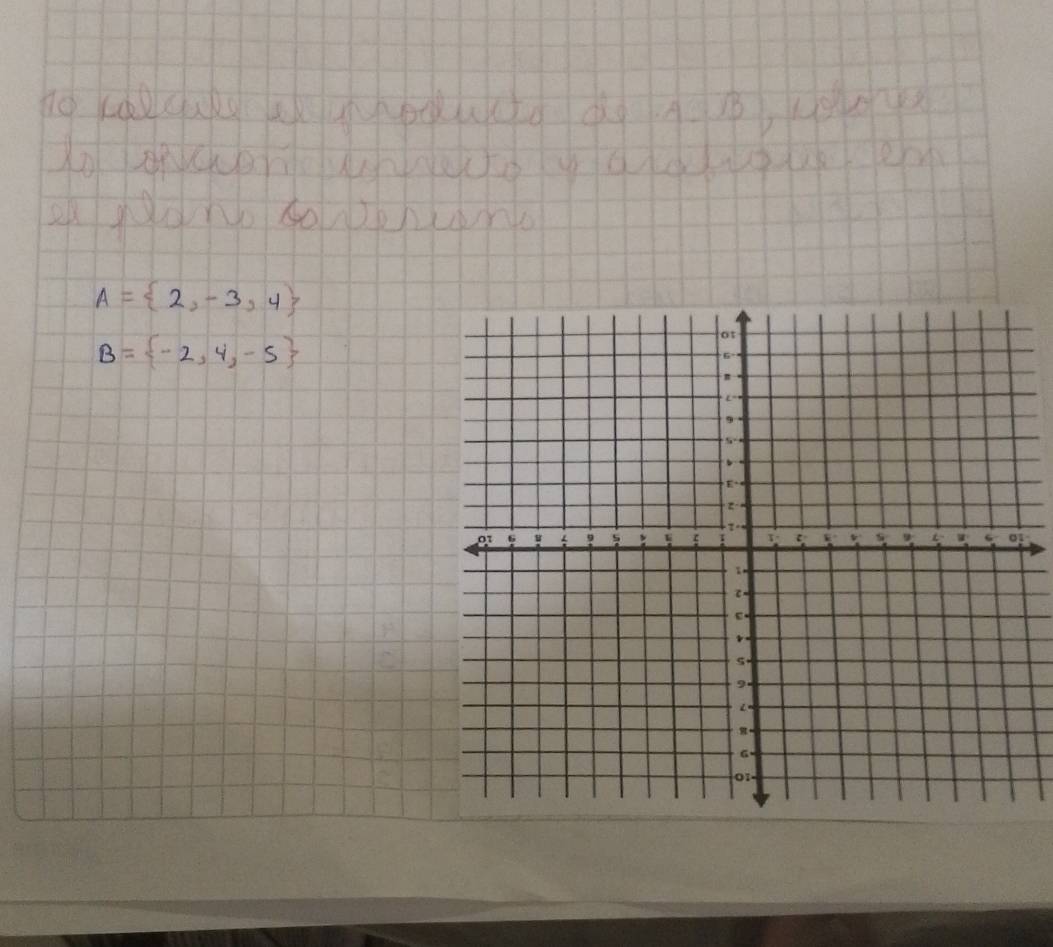 10 calcule el producto de A B, colore
la opcion correcta y grafique en
el plano
A = { 2, -3, 4 }
B = { -2, 4, -5 }
10
-9
8
-7
6
-5
4
-3
2
-1
10 9 8 7 6 5 4 3 2 1 -1 -2 -3 -4 -5 -6 -7 -8 -9 -10
1
2
3
4
5
6
7
8
9
10